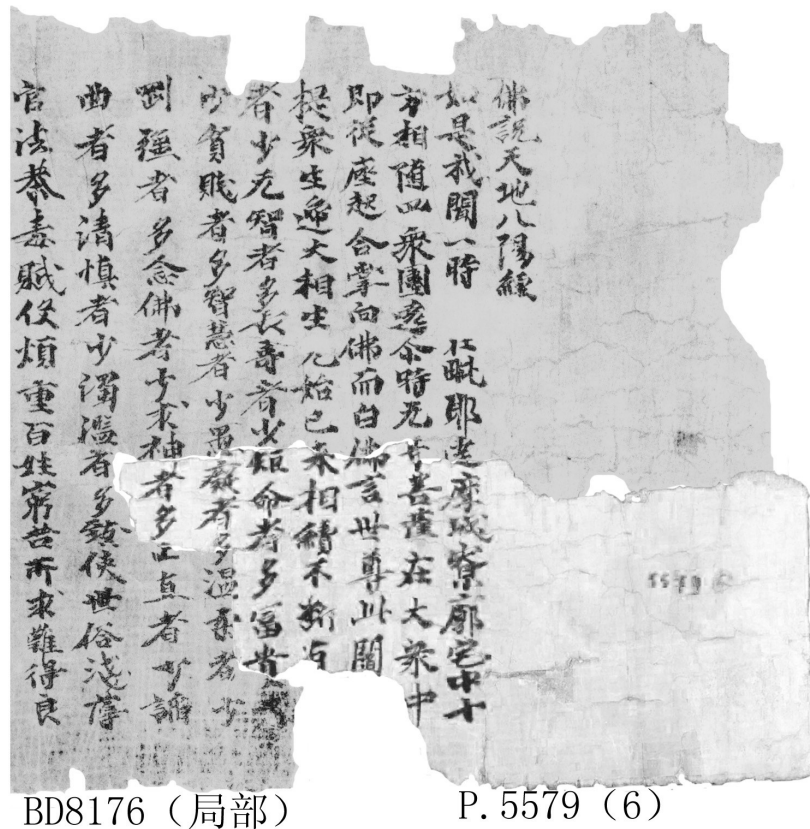 佛說天地八陽經
如是我聞一時 在毗耶達摩城寮廓宅中十
方相随四衆圍遶尒時无导菩薩在大衆中
即從座起合掌向佛而白佛言世尊此閻
提衆生遞大相生无始已来相續不断有
者少无智者多長壽者少短命者多冨貴
少貧賎者多智慧者少愚癡者多温柔者少
剛強者多念佛者少求神者多正直者少諂
曲者多清慎者少濁濫者多鎮使世俗淺薄
官法荼毒賦役煩重百姓窮苦所求難得良
5579 6
BD8176（局部）
P.5579（6）